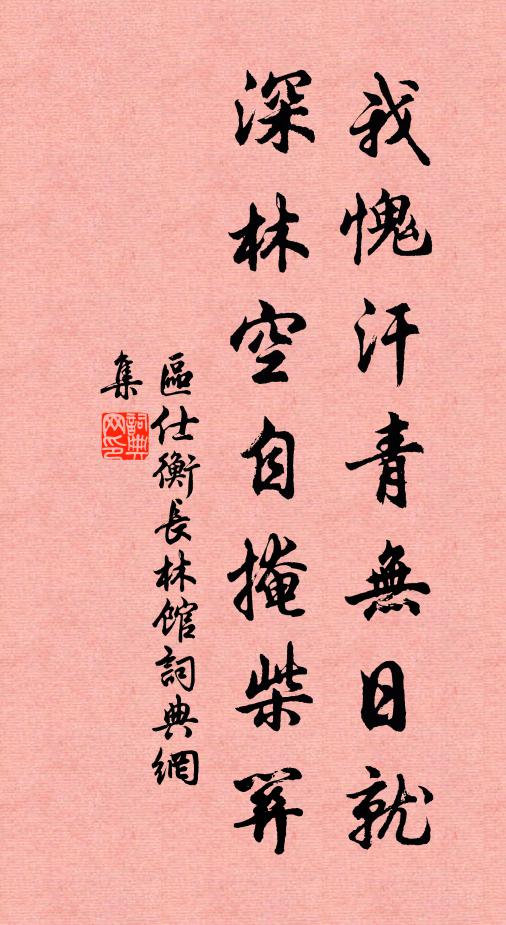 我愧汗青無日就
深林空自掩柴笄
區仕衡長林館詞典網
集
詞典網印